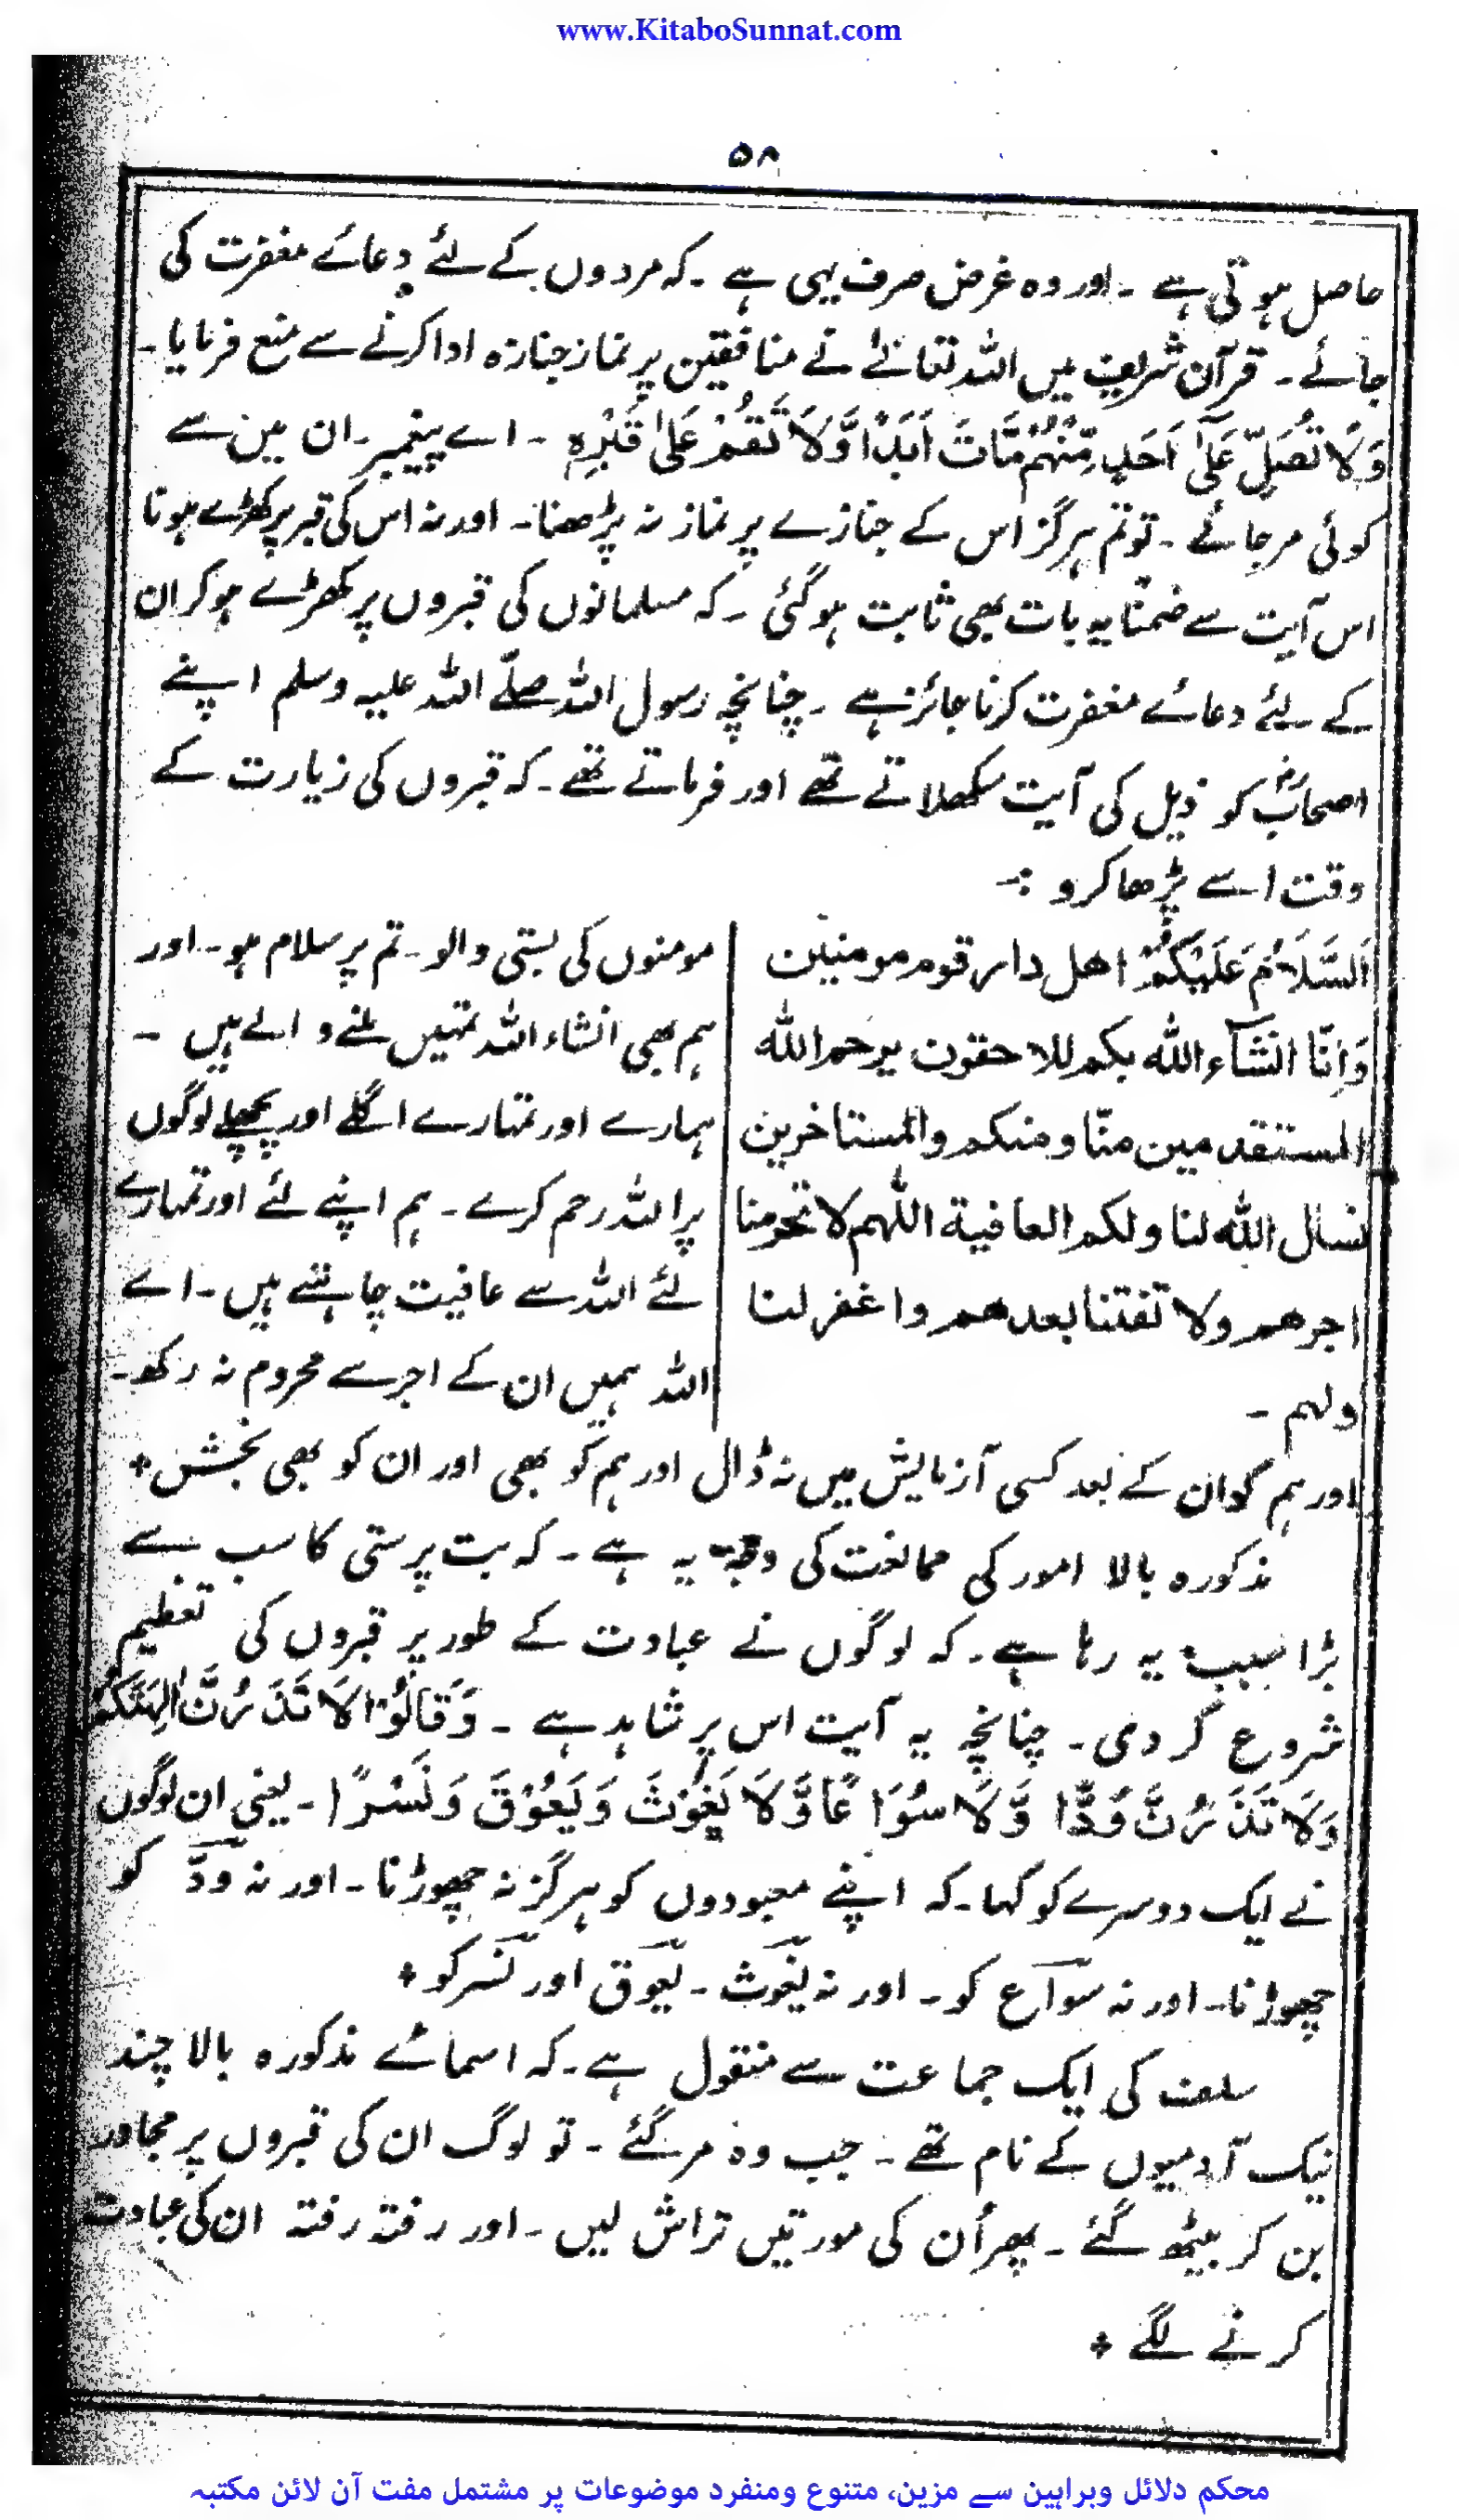 www.KitaboSunnat.com
۵۸
حاصل ہوتی ہے ۔ اور وہ غرض صرف یہی ہے ۔ کہ مردوں کے لئے دعائے مغفرت کی
جائے ۔ قرآن شریف میں اللہ تعالےٰ نے منافقین پر نماز جنازہ ادا کرنے سے منع فرمایا ۔
وَلَا تُصَلِّ عَلٰٓی اَحَدٍ مِّنْهُمْ مَّاتَ اَبَدًا وَّلَا تَقُمْ عَلٰی قَبْرِهٖ ۔ اے پیغمبر ۔ ان میں سے
کوئی مر جائے ۔ تو تم ہرگز اس کے جنازے پر نماز نہ پڑھنا ۔ اور نہ اس کی قبر پر کھڑے ہونا
اس آیت سے ضمناً یہ بات بھی ثابت ہوگئی ۔ کہ مسلمانوں کی قبروں پر کھڑے ہو کر ان
کے لئے دعائے مغفرت کرنا جائز ہے ۔ چنانچہ رسول اللہ صلّے اللہ علیہ وسلم اپنے
اصحابؓ کو ذیل کی آیت سکھلاتے تھے اور فرماتے تھے ۔ کہ قبروں کی زیارت کے
وقت اسے پڑھا کرو :۔
اَلسَّلَامُ عَلَیْکُمْ اهل دار قوم مومنین
وَاِنَّا انْشَآء اللّٰه بکم للاحقون یرحم اللّٰه
المستقدمین منّا ومنکم والمستاخرین
نسال اللّٰه لنا ولکم العافیة اللّٰهم لا تحرمنا
اجرهم ولا تفتنا بعدهم واغفر لنا
ولهم ۔
مومنوں کی بستی والو ۔ تم پر سلام ہو ۔ اور
ہم بھی انشاء اللہ تمہیں ملنے والے ہیں ۔
ہمارے اور تمہارے اگلے اور پچھلے لوگوں
پر اللہ رحم کرے ۔ ہم اپنے لئے اور تمہارے
لئے اللہ سے عافیت چاہتے ہیں ۔ اے
اللہ ہمیں ان کے اجر سے محروم نہ رکھ ۔
اور ہم کو ان کے بعد کسی آزمایش میں نہ ڈال اور ہم کو بھی اور ان کو بھی بخش ٭
مذکورہ بالا امور کی ممانعت کی وجہ یہ ہے ۔ کہ بت پرستی کا سب سے
بڑا سبب یہ رہا ہے ۔ کہ لوگوں نے عبادت کے طور پر قبروں کی تعظیم
شروع کر دی ۔ چنانچہ یہ آیت اس پر شاہد ہے ۔ وَقَالُوْا لَا تَذَرُنَّ اٰلِهَتَکُمْ
وَلَا تَذَرُنَّ وَدًّا وَّلَا سُوَاعًا وَّلَا یَغُوْثَ وَیَعُوْقَ وَنَسْرًا ۔ یعنی ان لوگوں
نے ایک دوسرے کو کہا ۔ کہ اپنے معبودوں کو ہرگز نہ چھوڑنا ۔ اور نہ ودّ کو
چھوڑنا ۔ اور نہ سواع کو ۔ اور نہ یغوث ۔ یعوق اور نسر کو ٭
سلف کی ایک جماعت سے منقول ہے ۔ کہ اسمائے مذکورہ بالا چند
نیک آدمیوں کے نام تھے ۔ جب وہ مر گئے ۔ تو لوگ ان کی قبروں پر مجاور
بن کر بیٹھ گئے ۔ پھر اُن کی مورتیں تراش لیں ۔ اور رفتہ رفتہ ان کی عبادت
کرنے لگے ٭
محکم دلائل وبراہین سے مزین، متنوع ومنفرد موضوعات پر مشتمل مفت آن لائن مکتبہ